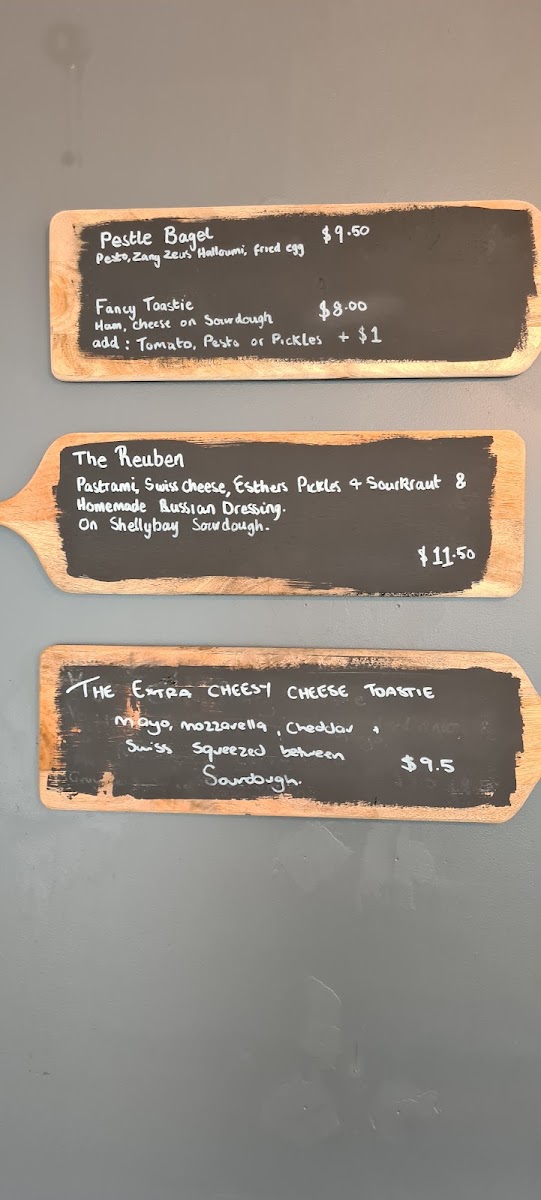 Pestle Bagel $9.50
Pesto, Zany Zeus Halloumi, fried egg
Fancy Toastie $8.00
Ham, cheese on Sourdough
add : Tomato, Pesto or Pickles + $1
The Reuben
Pastrami, Swiss cheese, Esthers Pickles & Sourkraut &
Homemade Russian Dressing.
On Shellybay Sourdough.
$11.50
THE EXTRA CHEESY CHEESE TOASTIE
Mayo, mozzarella, Cheddar +
Swiss Squeezed between $9.5
Sourdough.